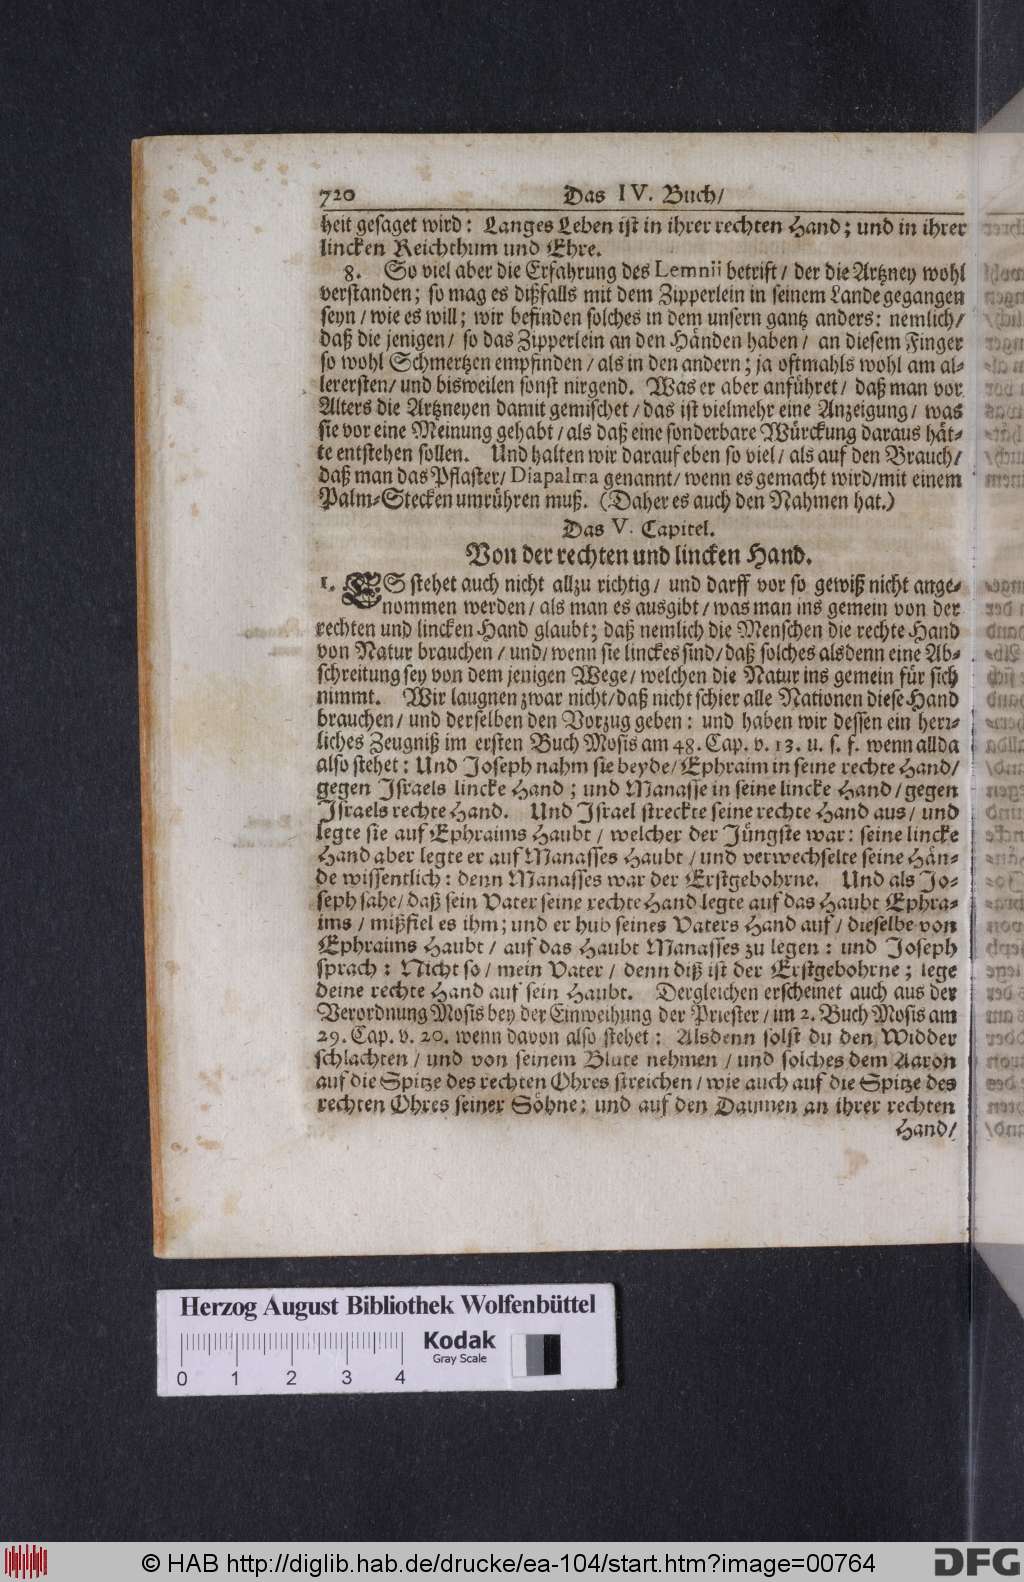 720 Das IV. Buch/
heit gesaget wird: Langes Leben ist in ihrer rechten Hand; und in ihrer
lincken Reichthum und Ehre.
8. So viel aber die Erfahrung des Lemnii betrift/ der die Artzney wohl
verstanden; so mag es dißfalls mit dem Zipperlein in seinem Lande gegangen
seyn/ wie es will; wir befinden solches in dem unsern gantz anders: nemlich/
daß die jenigen/ so das Zipperlein an den Händen haben/ an diesem Finger
so wohl Schmertzen empfinden/ als in den andern; ja oftmahls wohl am al-
lerersten/ und bisweilen sonst nirgend. Was er aber anführet/ daß man vor
Alters die Artzneyen damit gemischet/ das ist vielmehr eine Anzeigung/ was
sie vor eine Meinung gehabt/ als daß eine sonderbare Würckung daraus hät-
te entstehen sollen. Und halten wir darauf eben so viel/ als auf den Brauch/
daß man das Pflaster/ Diapalma genannt/ wenn es gemacht wird/ mit einem
Palm-Stecken umrühren muß. (Daher es auch den Nahmen hat.)
Das V. Capitel.
Von der rechten und lincken Hand.
1. ES stehet auch nicht allzu richtig/ und darff vor so gewiß nicht ange-
nommen werden/ als man es ausgibt/ was man ins gemein von der
rechten und lincken Hand glaubt; daß nemlich die Menschen die rechte Hand
von Natur brauchen/ und/ wenn sie linckes sind/ daß solches alsdenn eine Ab-
schreitung sey von dem jenigen Wege/ welchen die Natur ins gemein für sich
nimmt. Wir laugnen zwar nicht/ daß nicht schier alle Nationen diese Hand
brauchen/ und derselben den Vorzug geben: und haben wir dessen ein herr-
liches Zeugniß im ersten Buch Mosis am 48. Cap. v. 13. u. s. f. wenn allda
also stehet: Und Joseph nahm sie beyde/ Ephraim in seine rechte Hand/
gegen Israels lincke Hand; und Manasse in seine lincke Hand/ gegen
Israels rechte Hand. Und Israel streckte seine rechte Hand aus/ und
legte sie auf Ephraims Haubt/ welcher der Jüngste war: seine lincke
Hand aber legte er auf Manasses Haubt/ und verwechselte seine Hän-
de wissentlich: denn Manasses war der Erstgebohrne. Und als Jo-
seph sahe/ daß sein Vater seine rechte Hand legte auf das Haubt Ephra-
ims/ mißfiel es ihm; und er hub seines Vaters Hand auf/ dieselbe von
Ephraims Haubt/ auf das Haubt Manasses zu legen: und Joseph
sprach: Nicht so/ mein Vater/ denn diß ist der Erstgebohrne; lege
deine rechte Hand auf sein Haubt. Dergleichen erscheinet auch aus der
Verordnung Mosis bey der Einweihung der Priester/ im 2. Buch Mosis am
29. Cap. v. 20. wenn davon also stehet: Alsdenn solst du den Widder
schlachten/ und von seinem Blute nehmen/ und solches dem Aaron
auf die Spitze des rechten Ohres streichen/ wie auch auf die Spitze des
rechten Ohres seiner Söhne; und auf den Daumen an ihrer rechten
Hand/
Herzog August Bibliothek Wolfenbüttel
Kodak
Gray Scale
0 1 2 3 4
© HAB http://diglib.hab.de/drucke/ea-104/start.htm?image=00764
DFG